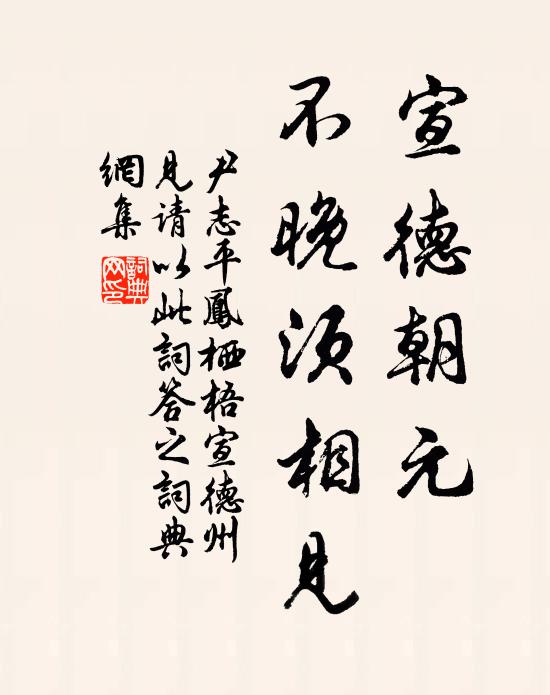 宣德朝元
不晚须相見
尹志平鳳栖梧宣德州
見请以此詞答之詞典
網集
詞典网印